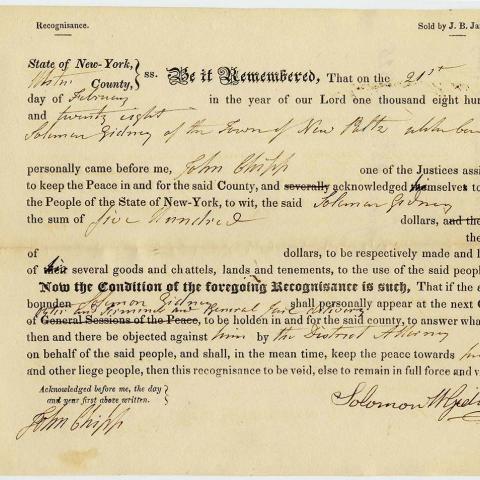 Recognisance. Sold by J. B. Ja
State of New-York,
Ulster County, } ss. Be it Remembered, That on the 21st
day of February in the year of our Lord one thousand eight hun
and twenty eight
Solomon Gidney of the Town of New Paltz
personally came before me, John Chipp one of the Justices assi
to keep the Peace in and for the said County, and severally acknowledged himselves t
the People of the State of New-York, to wit, the said Solomon Gidney
the sum of five Hundred dollars, and the
the
of dollars, to be respectively made and l
of their his several goods and chattels, lands and tenements, to the use of the said peopl
Now the Condition of the foregoing Recognisance is such, That if the a
bounden Solomon Gidney shall personally appear at the next C
Oyer and Terminer and General Jail Delivery
of General Sessions of the Peace, to be holden in and for the said county, to answer wha
then and there be objected against him by the District Attorney
on behalf of the said people, and shall, in the mean time, keep the peace towards
and other liege people, then this recognisance to be void, else to remain in full force and v
Acknowledged before me, the day
and year first above written. }
Solomon W Gidn
John Chipp